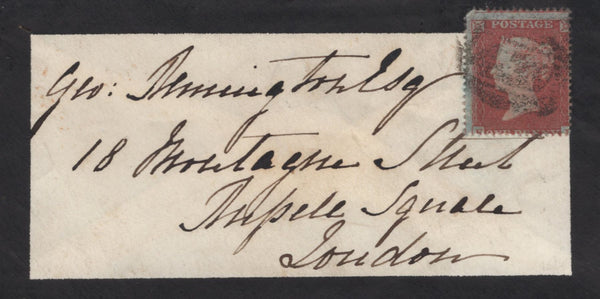 POSTAGE
Geo: Remington Esq
18 Montague Street
Russell Square
London